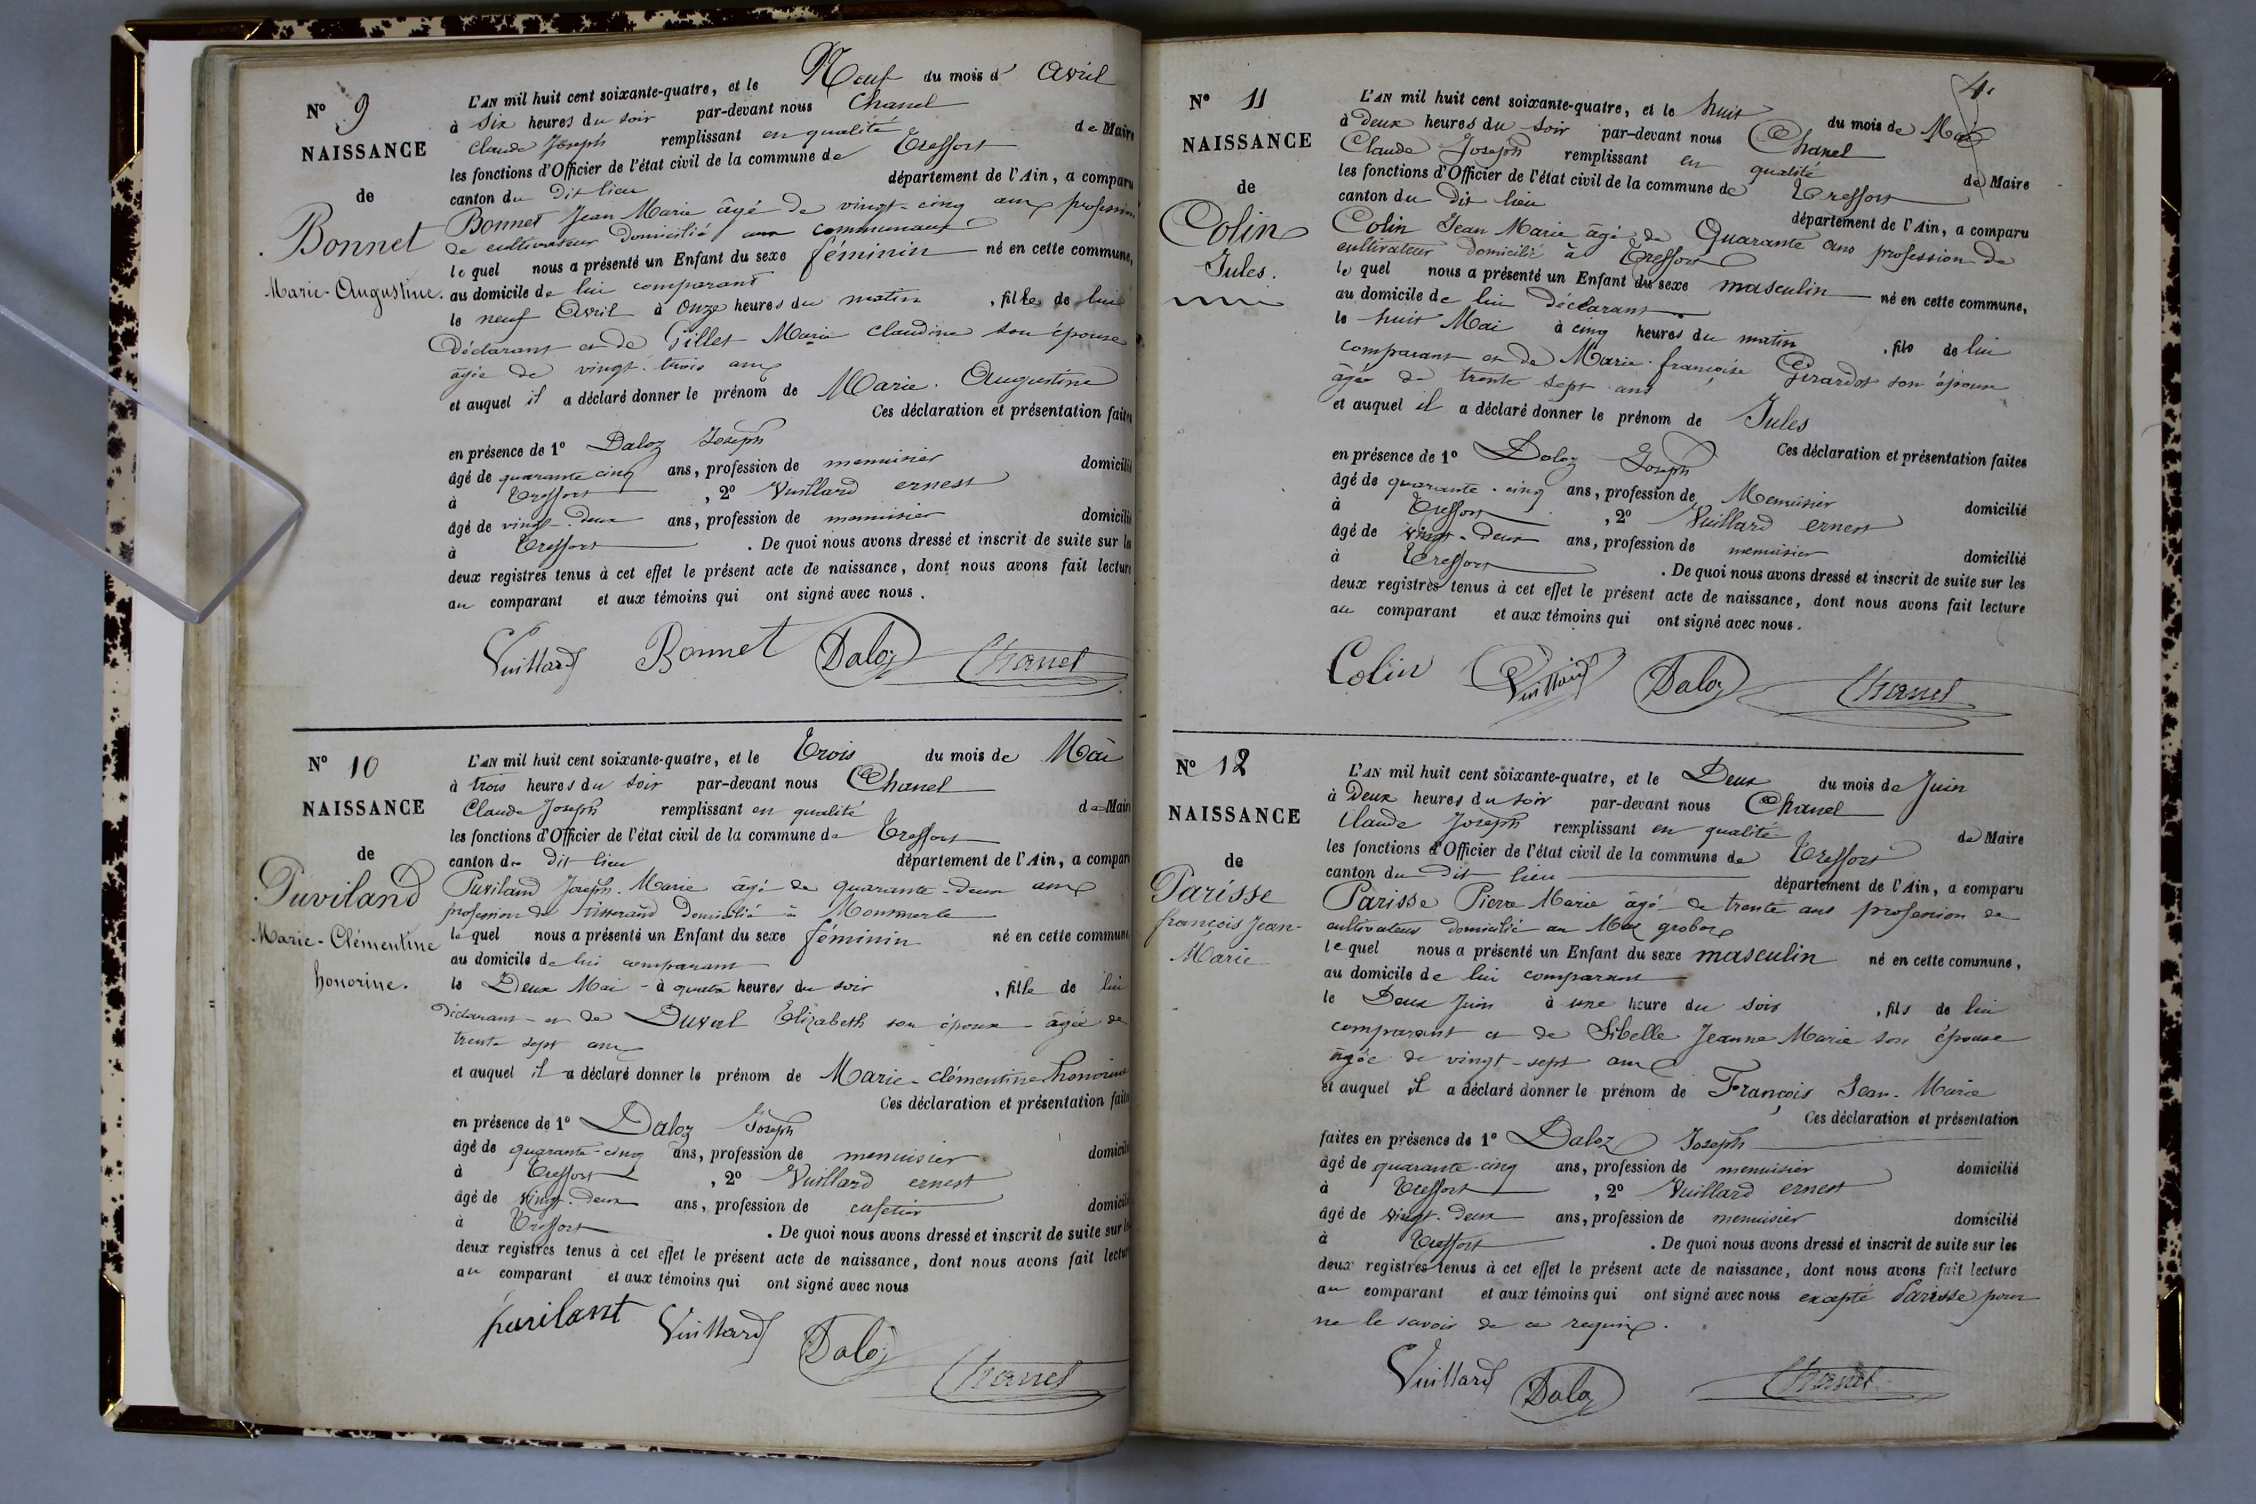 N° 9
NAISSANCE
de
Bonnet
Marie-Augustine.
L'AN mil huit cent soixante-quatre, et le Neuf du mois d' Avril
à Six heures du soir par-devant nous Chanel
Claude Joseph remplissant en qualité de Maire
les fonctions d'Officier de l'état civil de la commune de Treffort
canton du dit lieu département de l'Ain, a comparu
Bonnet Jean Marie âgé de vingt-cinq ans profession
de cultivateur domicilié aux communaux
le quel nous a présenté un Enfant du sexe féminin né en cette commune,
au domicile de lui comparant
le neuf Avril à Onze heures du matin , fille de lui
Déclarant et de Gillet Marie Claudine son épouse
âgée de vingt-trois ans
et auquel il a déclaré donner le prénom de Marie. Augustine
Ces déclaration et présentation faites
en présence de 1° Daloz Joseph
âgé de quarante cinq ans, profession de menuisier domicilié
à Treffort , 2° Vuillard ernest
âgé de vingt-deux ans, profession de menuisier domicilié
à Treffort . De quoi nous avons dressé et inscrit de suite sur les
deux registres tenus à cet effet le présent acte de naissance, dont nous avons fait lecture
au comparant et aux témoins qui ont signé avec nous.
Vuillard Bonnet Daloz Chanel
N° 10
NAISSANCE
de
Puviland
Marie-Clémentine
honorine.
L'AN mil huit cent soixante-quatre, et le Trois du mois de Mai
à trois heures du soir par-devant nous Chanel
Claude Joseph remplissant en qualité de Maire
les fonctions d'Officier de l'état civil de la commune de Treffort
canton du dit lieu département de l'Ain, a comparu
Puviland Joseph-Marie âgé de quarante-deux ans
profession de tisserand domicilié à Montmerle
le quel nous a présenté un Enfant du sexe féminin né en cette commune
au domicile de lui comparant
le Deux Mai - à quatre heures du soir , fille de lui
déclarant et de Duval Elizabeth son épouse âgée de
trente sept ans
et auquel il a déclaré donner le prénom de Marie-clémentine honorine
Ces déclaration et présentation faites
en présence de 1° Daloz Joseph
âgé de quarante-cinq ans, profession de menuisier domicilié
à Treffort , 2° Vuillard ernest
âgé de vingt-deux ans, profession de cafetier domicilié
à Treffort . De quoi nous avons dressé et inscrit de suite sur les
deux registres tenus à cet effet le présent acte de naissance, dont nous avons fait lecture
au comparant et aux témoins qui ont signé avec nous
puvilant Vuillard Daloz Chanel
4.
N° 11
NAISSANCE
de
Colin
Jules.
L'AN mil huit cent soixante-quatre, et le huit du mois de Mai
à Deux heures du soir par-devant nous Chanel
Claude Joseph remplissant en qualité de Maire
les fonctions d'Officier de l'état civil de la commune de Treffort
canton du dit lieu département de l'Ain, a comparu
Colin Jean Marie âgé de Quarante ans profession de
cultivateur domicilié à Treffort
le quel nous a présenté un Enfant du sexe masculin né en cette commune,
au domicile de lui déclarant
le huit Mai à cinq heures du matin , fils de lui
comparant et de Marie-françoise Girardot son épouse
âgée de trente sept ans
et auquel il a déclaré donner le prénom de Jules
Ces déclaration et présentation faites
en présence de 1° Daloz Joseph
âgé de quarante-cinq ans, profession de Menuisier domicilié
à Treffort , 2° Vuillard ernest
âgé de vingt-deux ans, profession de menuisier domicilié
à Treffort . De quoi nous avons dressé et inscrit de suite sur les
deux registres tenus à cet effet le présent acte de naissance, dont nous avons fait lecture
au comparant et aux témoins qui ont signé avec nous.
Colin Vuillard Daloz Chanel
N° 12
NAISSANCE
de
Parisse
françois Jean-
Marie
L'AN mil huit cent soixante-quatre, et le Deux du mois de Juin
à Deux heures du soir par-devant nous Chanel
Claude Joseph remplissant en qualité de Maire
les fonctions d'Officier de l'état civil de la commune de Treffort
canton du dit lieu département de l'Ain, a comparu
Parisse Pierre Marie âgé de trente ans profession de
cultivateur domicilié au Mas grobox
le quel nous a présenté un Enfant du sexe masculin né en cette commune,
au domicile de lui comparant
le Deux Juin à une heure du soir , fils de lui
comparant et de Sibelle Jeanne Marie son épouse
âgée de vingt-sept ans
et auquel il a déclaré donner le prénom de François Jean-Marie
Ces déclaration et présentation
faites en présence de 1° Daloz Joseph
âgé de quarante-cinq ans, profession de menuisier domicilié
à Treffort , 2° Vuillard ernest
âgé de vingt-deux ans, profession de menuisier domicilié
à Treffort . De quoi nous avons dressé et inscrit de suite sur les
deux registres tenus à cet effet le présent acte de naissance, dont nous avons fait lecture
au comparant et aux témoins qui ont signé avec nous excepté Parisse pour
ne le savoir de ce requis.
Vuillard Daloz Chanel